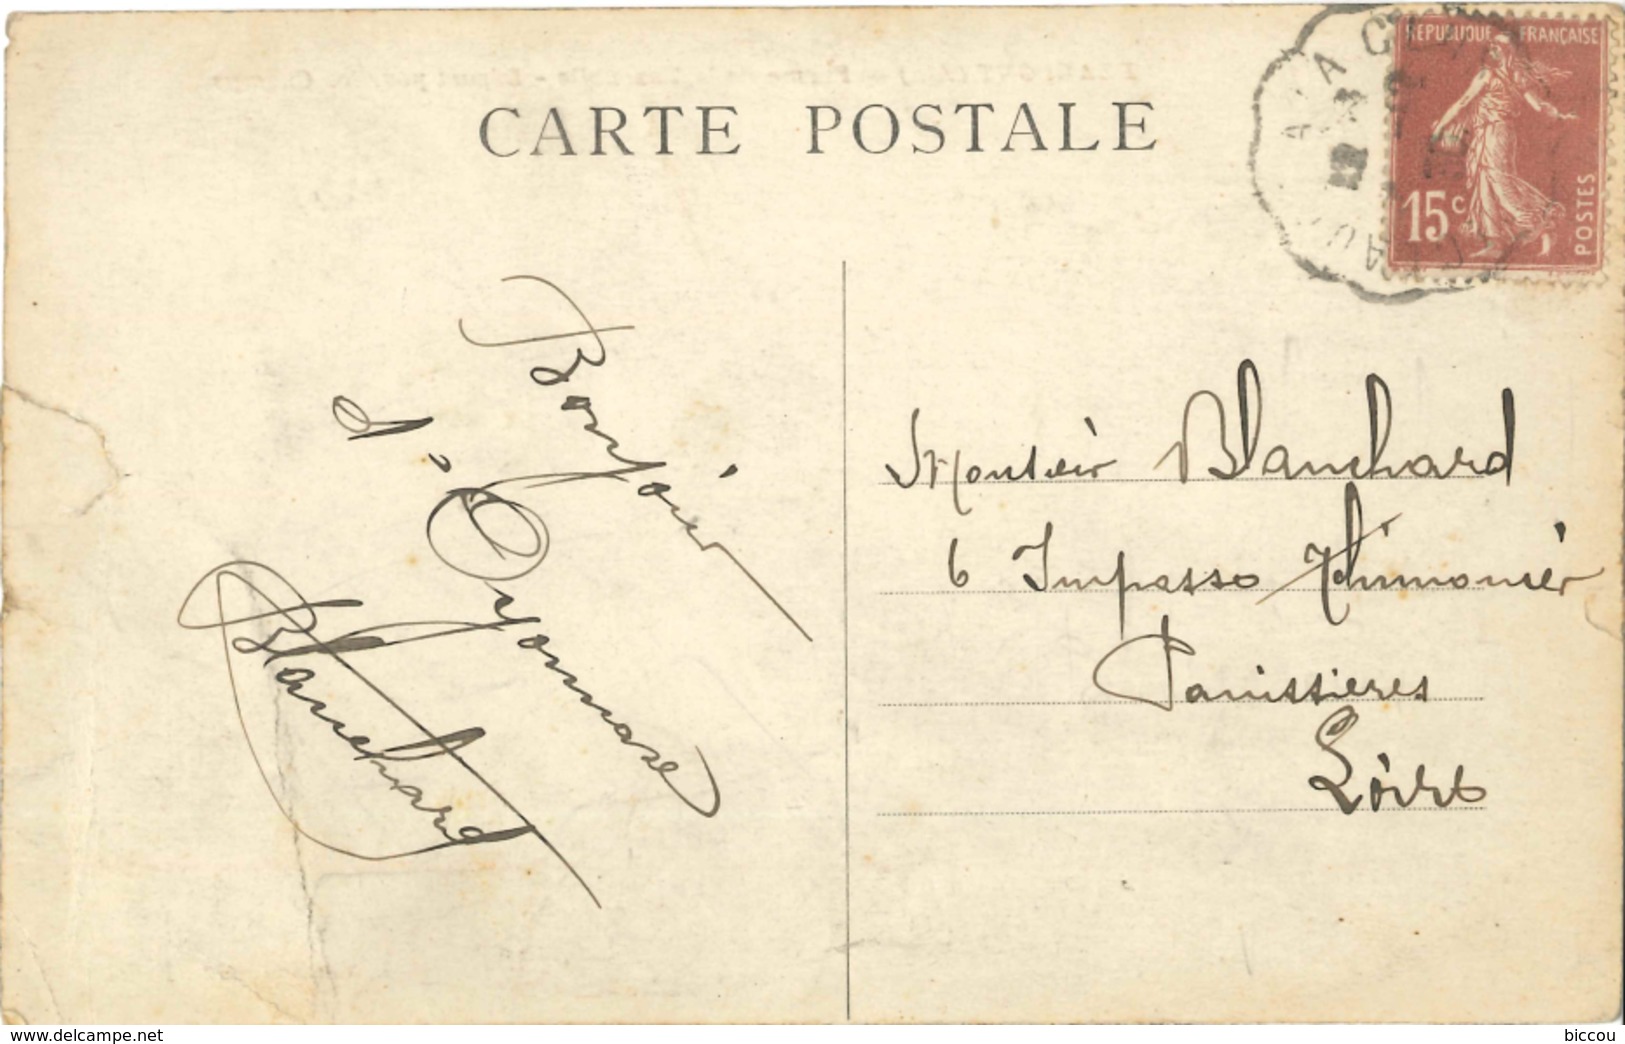 CARTE POSTALE
REPUBLIQUE FRANÇAISE
15c
POSTES
Bonjour
d'Oyonnaxe
Blanchard
Monsieur Blanchard
6 Impasse Thimonier
Panissieres
Loire
www.delcampe.net
biccou